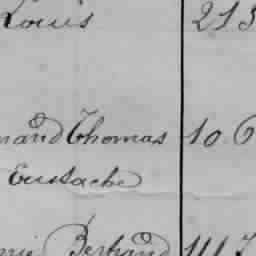 Louis 213
nand Thomas 10 6
Eustache
Bertrand